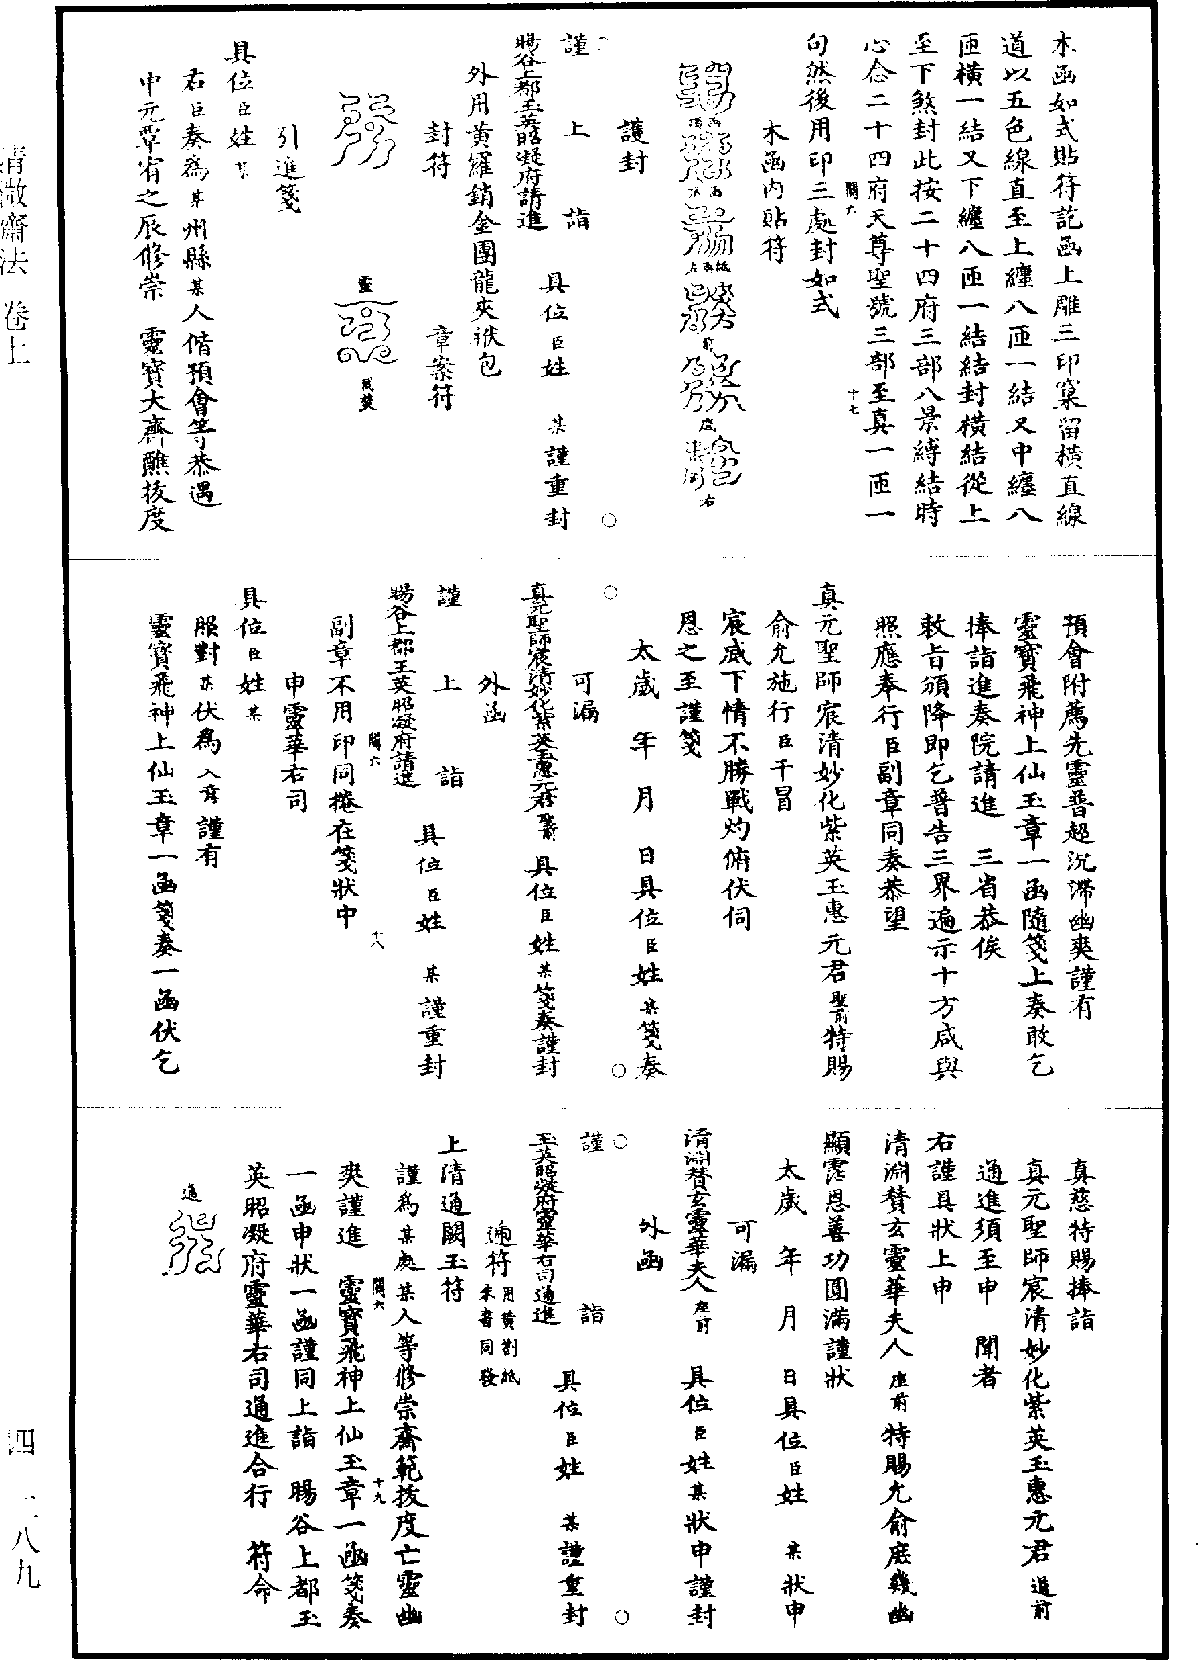 木函如式貼符訖函上雕三印窠留橫直線
道以五色線直至上纏八匝一結又中纏八
匝橫一結又下纏八匝一結結封橫結從上
至下煞封此按二十四府三部八景縛結時
心念二十四府天尊聖號三部至真一匝一
關六 十七
句然後用印三處封如式
木函內貼符
護封
謹 上 詣
暘谷上都玉英昭凝府請進
具位臣姓 某謹重封
外用黃羅銷金團龍夾袱包
封符 章案符
引進箋
具位臣姓某
右臣奏為某州縣某人偕預會等恭遇
中元覃宥之辰修崇 靈寶大齋醮拔度
預會附薦先靈普超沉滯幽爽謹有
靈寶飛神上仙玉章一函隨箋上奏敢乞
捧詣進奏院請進 三省恭俟
敕旨頒降即乞普告三界遍示十方咸與
照應奉行臣副章同奏恭望
真元聖師宸清妙化紫英玉惠元君聖前特賜
俞允施行臣干冒
宸威下情不勝戰灼俯伏伺
恩之至謹箋
太歲 年 月 日具位臣姓某箋奏
可漏
真元聖師宸清妙化紫英玉惠元君聖前 具位臣姓某箋奏謹封
外函
謹 上 詣
暘谷上都玉英昭凝府請進
具位臣姓 某謹重封
關六 十八
副章不用印同捲在箋狀中
申靈華右司
具位臣姓某
照對某伏為入意謹有
靈寶飛神上仙玉章一函箋奏一函伏乞
真慈特賜捧詣
真元聖師宸清妙化紫英玉惠元君 進前
通進須至申 聞者
右謹具狀上申
清淵贊玄靈華夫人 座前特賜允俞庶幾幽
顯霑恩善功圓滿謹狀
太歲 年 月 日具位臣姓 某狀申
可漏
清淵贊玄靈華夫人座前 具位臣姓某狀申謹封
外函
謹 詣
玉英昭凝府靈華右司通進
具位臣姓 某謹重封
遞符用黃劄紙朱書同發
上清通闕玉符
謹為某處某人等修崇齋範拔度亡靈幽
關六 十九
爽謹進 靈寶飛神上仙玉章一函箋奏
一函申狀一函謹同上詣 暘谷上都玉
英昭凝府靈華右司通進合行 符命
進
清微齋法 卷上
四 一八九